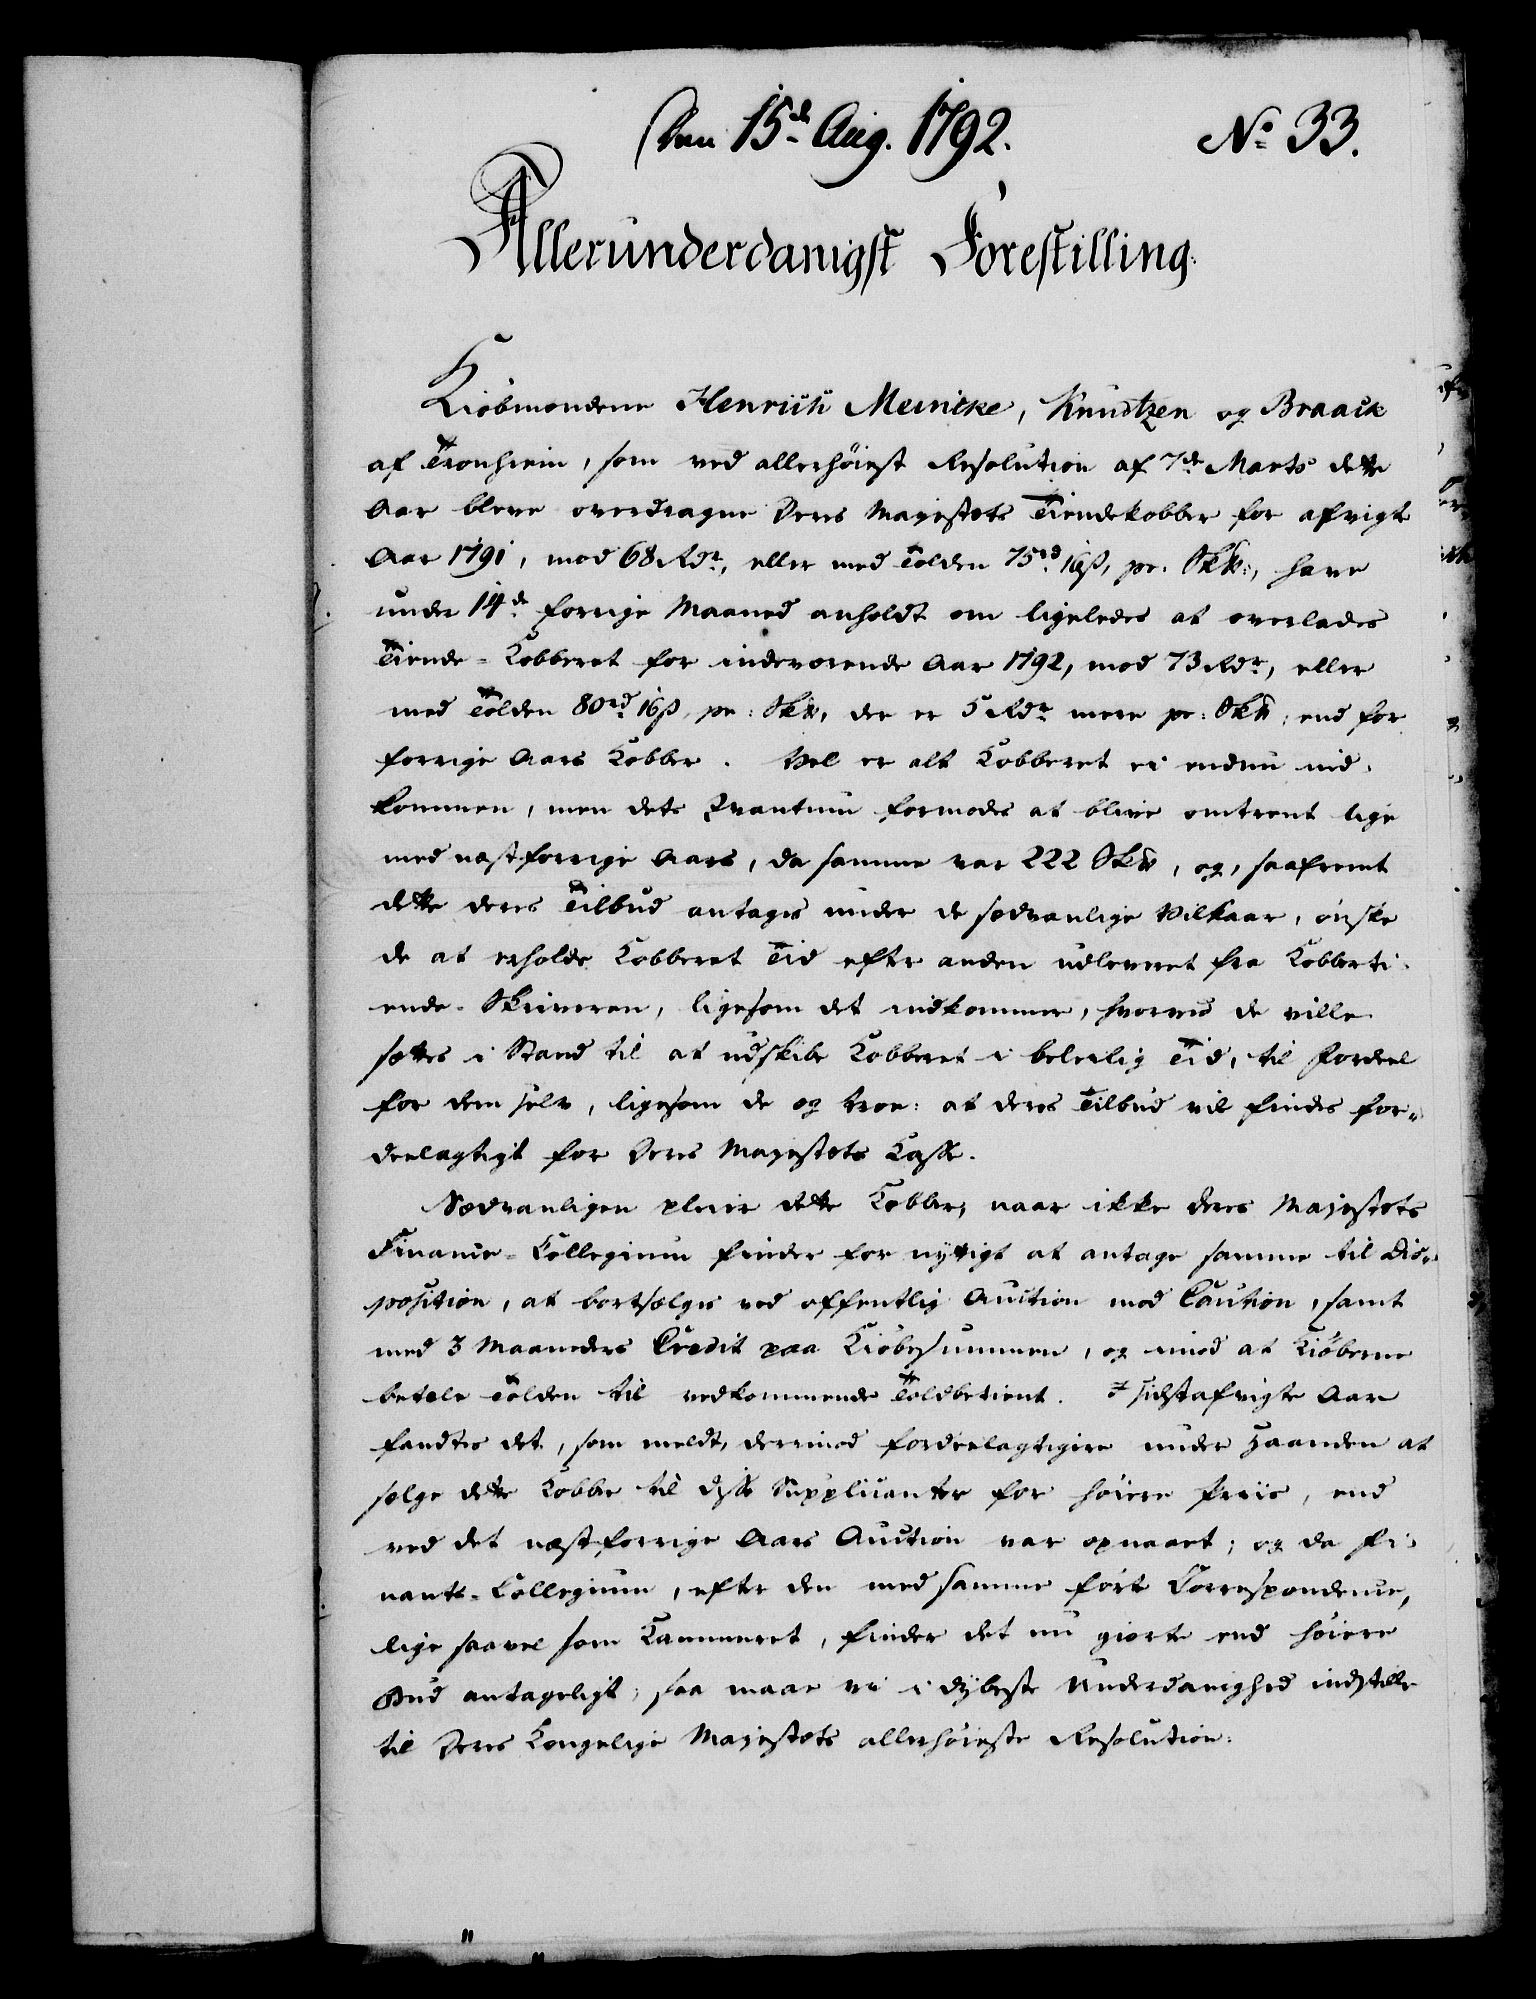 Den 15de Aug. 1792. No 33.
Allerunderdanigst Forestilling.
Kiøbmændene Henrich Meincke, Knudtzen og Braack
af Tronhiem, som ved allerhøiest Resolution af 7de Marts dette
Aar bleve overdragne Deres Majestæts Tiendekobber for afvigte
Aar 1791, mod 68 Rdr, eller med Tolden 75rd 16ß, pr. Sk℔, have
under 14de forrige Maaned anholdt om ligeledes at overlades
Tiende-Kobberet for indeværende Aar 1792, mod 73 Rdr, eller
med Tolden 80rd 16ß, pr: Sk℔, der er 5 Rdr mere pr: Sk℔, end for
forrige Aars Kobber. Vel er alt Kobberet ei endnu ind-
kommen, men dets Qvantum formodes at blive omtrent lige
med næstforrige Aars, da samme var 222 Sk℔, og, saafremt
dette deres Tilbud antages under de sædvanlige Vilkaar, ønske
de at erholde Kobberet Tid efter anden udleveret fra Kobberti-
ende-Skriveren, ligesom det indkommer, hvorved de ville
sættes i Stand til at udskibe Kobberet i beleilig Tid, til Fordeel
for dem selv, ligesom de og troe: at deres Tilbud vil findes for-
deelagtigt for Deres Majestæts Kasse.
Sædvanligen pleier dette Kobber, naar ikke Deres Majestæts
Finance-Collegium finder for nyttigt at antage samme til Dis-
position, at bortsælges ved offentlig Auction mod Caution, samt
med 3 Maaneders Credit paa Kiøbesummen, og imod at Kiøberne
betale Tolden til vedkommende Toldbetient. I sidstafvigte Aar
fandtes det, som meldt, derimod fordeelagtigere under Haanden at
sælge dette Kobber til disse Supplicanter for høiere Priis, end
ved det næstforrige Aars Auction var opnaaet; og da Fi-
nants-Collegium, efter den med samme førte Correspondence,
lige saavel som Kammeret, finder det nu giorte end høiere
Bud antageligt; saa maae vi i dybeste Underdanighed indstille
til Deres Kongelige Majestæts allerhøieste Resolution: